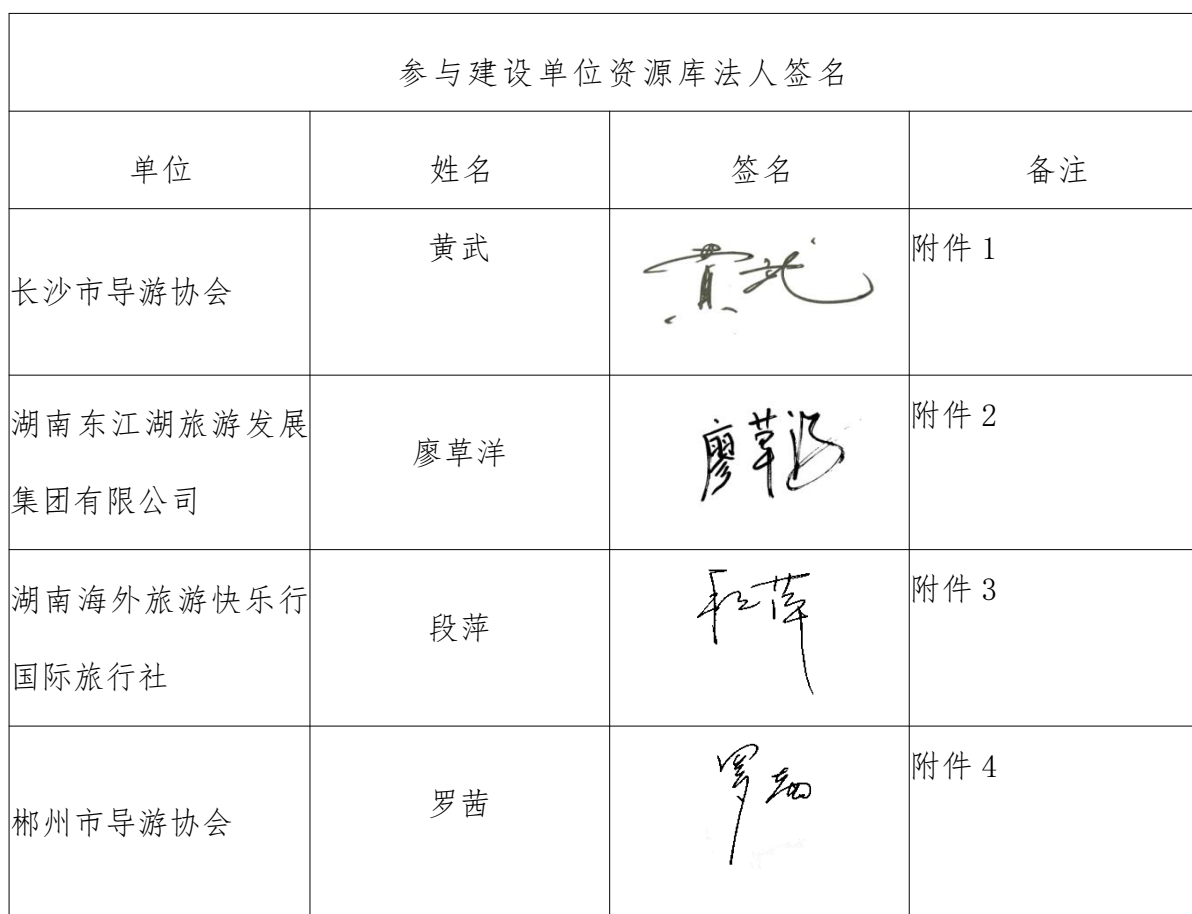 参与建设单位资源库法人签名
单位 姓名 签名 备注
长沙市导游协会 黄武 黄武 附件 1
湖南东江湖旅游发展
集团有限公司 廖草洋 廖草洋 附件 2
湖南海外旅游快乐行
国际旅行社 段萍 段萍 附件 3
郴州市导游协会 罗茜 罗茜 附件 4